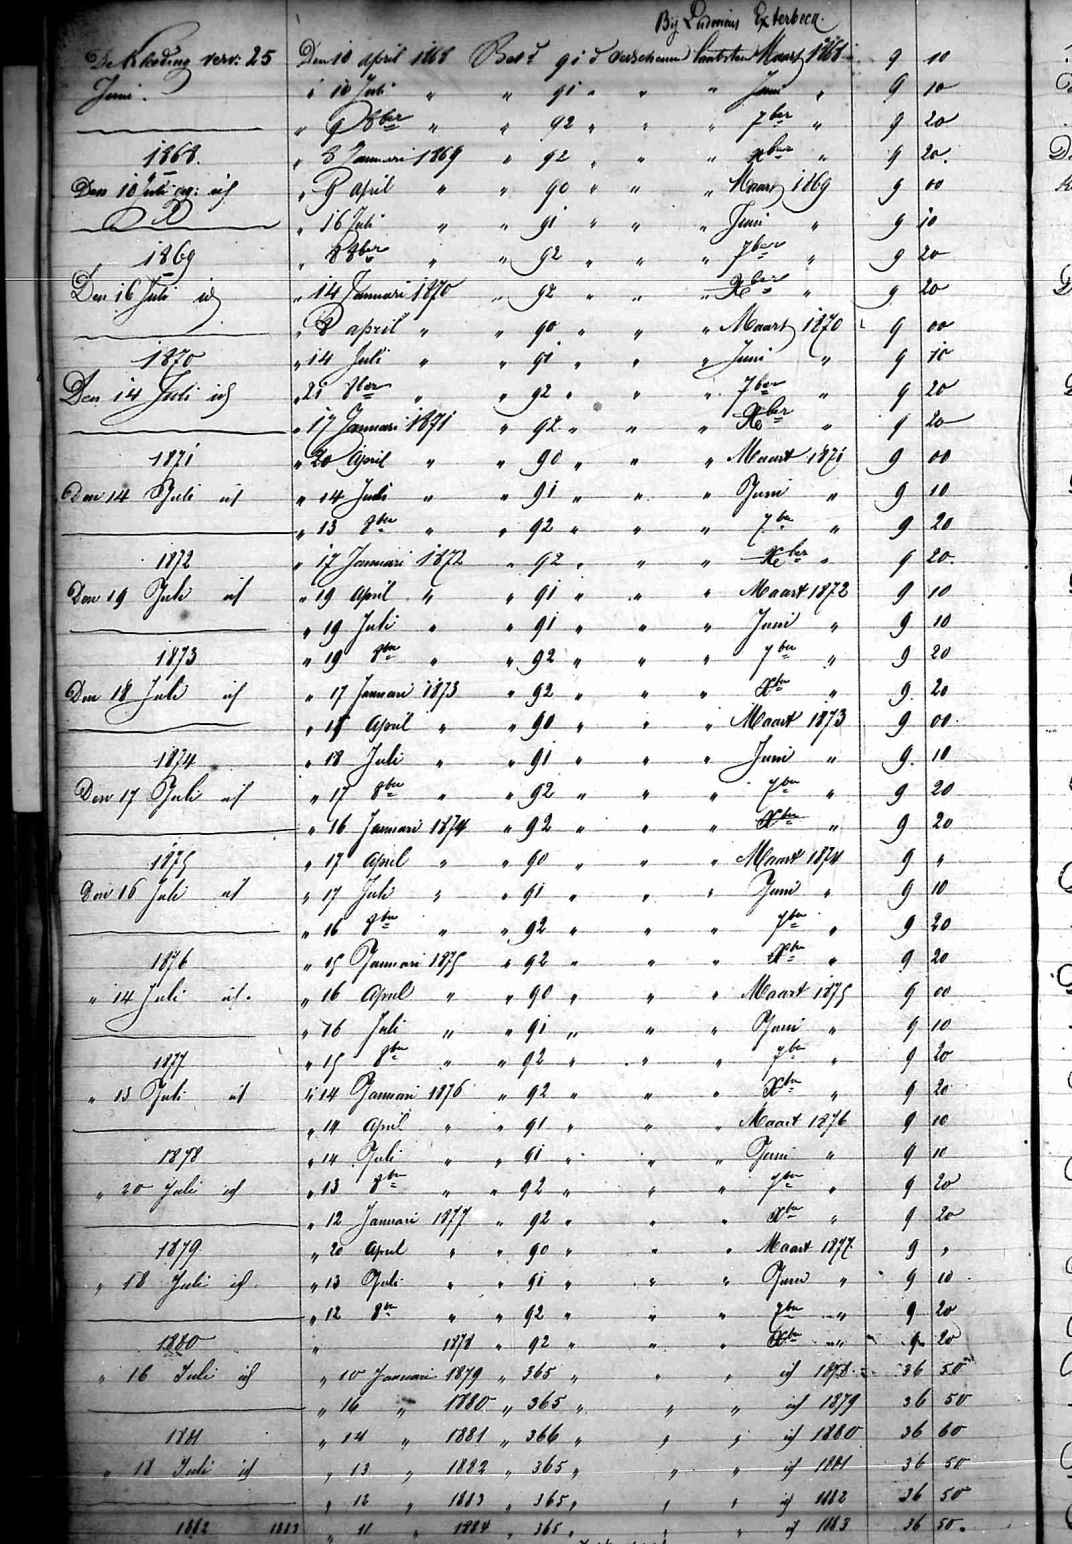 Bij Ludovicus Exterbeek.
De Kleeding verv: 25 Den 10 april 1868 Bet d 91 d verschenen Maart 1868 9 10
Juni. " 10 Juli " " 91 " " " Juni " 9 10
" 9 8ber " " 92 " " " 7ber " 9 20
1868. " 8 Januari 1869 " 92 " " " Xber " 9 20.
Den 10 Juli " 9 April " " 90 " " " Maart 1869 9 00
" 16 Juli " " 91 " " " Juni " 9 10
1869 " 8 8ber " " 92 " " " 7ber " 9 20
Den 16 Juli id " 14 Januari 1870 " 92 " " " Xber " 9 20
" 8 april " " 90 " " " Maart 1870 9 00
1870 " 14 Juli " " 91 " " " Juni " 9 10
Den 14 Juli id " 21 8ber " " 92 " " " 7ber " 9 20
" 17 Januari 1871 " 92 " " " Xber " 9 20
1871 " 20 April " " 90 " " " Maart 1871 9 00
Den 14 Juli id " 14 Juli " " 91 " " " Juni " 9 10
" 13 8ber " " 92 " " " 7ber " 9 20
1872 " 17 Januari 1872 " 92 " " " Xber " 9 20.
Den 19 Juli id " 19 April " " 91 " " " Maart 1872 9 10
" 19 Juli " " 91 " " " Juni " 9 10
1873 " 19 8ber " " 92 " " " 7ber " 9 20
Den 18 Juli id " 17 Januari 1873 " 92 " " " Xber " 9 20
" 18 April " " 90 " " " Maart 1873 9 00
1874 " 18 Juli " " 91 " " " Juni " 9 10
Den 17 Juli id " 17 8ber " " 92 " " " 7ber " 9 20
" 16 Januari 1874 " 92 " " " Xber " 9 20
1875 " 17 April " " 90 " " " Maart 1874 9 "
Den 16 Juli id " 17 Juli " " 91 " " " Juni " 9 10
" 16 8ber " " 92 " " " 7ber " 9 20
1876 " 15 Januari 1875 " 92 " " " Xber " 9 20
" 14 Juli id. " 16 April " " 90 " " " Maart 1875 9 00
" 16 Juli " " 91 " " " Juni " 9 10
1877 " 15 8ber " " 92 " " " 7ber " 9 20
" 13 Juli id " 14 Januari 1876 " 92 " " " Xber " 9 20
" 14 April " " 91 " " " Maart 1876 9 10
1878 " 14 Juli " " 91 " " " Juni " 9 10
" 20 Juli id " 13 8ber " " 92 " " " 7ber " 9 20
" 12 Januari 1877 " 92 " " " Xber " 9 20
1879 " 20 April " " 90 " " " Maart 1877 9 "
" 18 Juli id " 13 Juli " " 91 " " " Juni " 9 10
" 12 8ber " " 92 " " " 7ber " 9 20
1880 " 1878 " 92 " " " Xber " 9 20
" 16 Juli id " 10 Januari 1879 " 365 " " " id 1878 36 50
" 16 " 1880 " 365 " " " id 1879 36 50
1881 " 14 " 1881 " 366 " " " id 1880 36 60
" 18 Juli id " 13 " 1882 " 365 " " " id 1881 36 50
" 12 " 1883 " 365 " " " id 1882 36 50
1882 1883 " 11 " 1884 " 365 " " " id 1883 36 50.